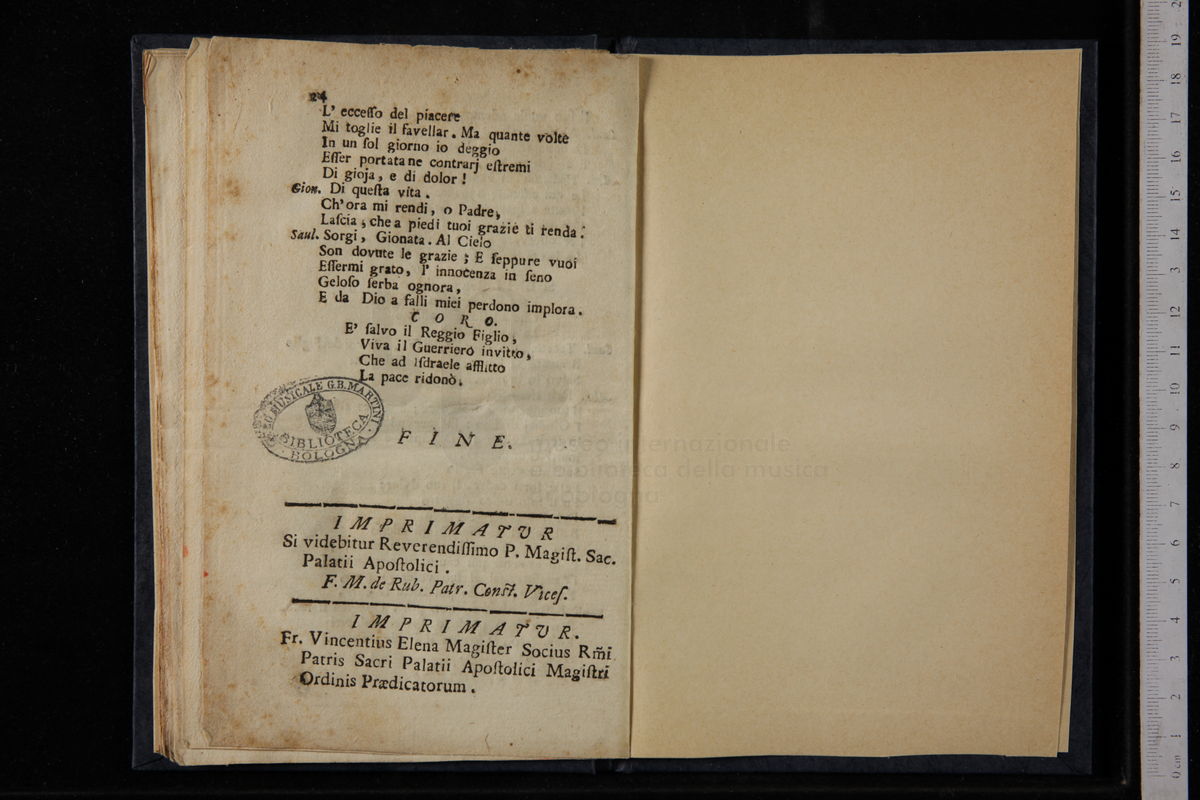 24
L' ecceſſo del piacere
Mi toglie il favellar. Ma quante volte
In un ſol giorno io deggio
Eſſer portata ne contrarj eſtremi
Di gioja, e di dolor!
Gion. Di queſta vita.
Ch'ora mi rendi, o Padre,
Laſcia, che a piedi tuoi grazie ti renda.
Saul. Sorgi, Gionata. Al Cielo
Son dovute le grazie; E ſeppure vuoi
Eſſermi grato, l' innocenza in ſeno
Geloſo ſerba ognora,
E da Dio a falli miei perdono implora.
CORO.
E' ſalvo il Reggio Figlio,
Viva il Guerriero invitto,
Che ad Iſdraele afflitto
La pace ridonò.
MUSICALE G.B. MARTINI
BIBLIOTECA
BOLOGNA
FINE.
museo internazionale
e biblioteca della musica
di bologna
IMPRIMATUR
Si videbitur Reverendiſſimo P. Magiſt. Sac.
Palatii Apoſtolici.
F. M. de Rub. Patr. Conſt. Viceſ.
IMPRIMATUR.
Fr. Vincentius Elena Magiſter Socius Rm̃i
Patris Sacri Palatii Apoſtolici Magiſtri
Ordinis Prædicatorum.
0 cm 1 2 3 4 5 6 7 8 9 10 11 12 13 14 15 16 17 18 19